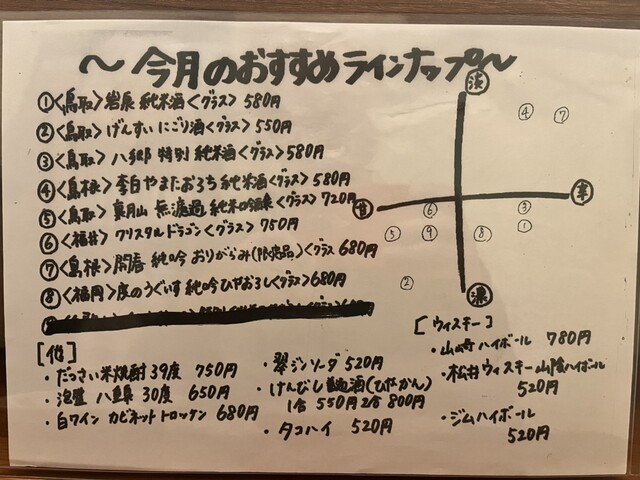 ～今月のおすすめラインナップ～
①<鳥取>岩泉 純米酒<グラス>580円
②<鳥取>げんすい にごり酒<グラス>550円
③<鳥取>八郷 特別 純米酒<グラス>580円
④<島根>李白やまたおろち 純米酒<グラス>580円
⑤<鳥取>真月山 無濾過 純米吟醸<グラス>720円
⑥<福井>クリスタルドラゴン<グラス>750円
⑦<島根>開春 純吟 おりがらみ(限定品)<グラス 680円
⑧<福岡>庭のうぐいす 純吟ひやおろし<グラス>680円
淡
甘
辛
濃
④ ⑦
⑥ ③
⑤ ⑨ ⑧ ①
②
[他]
・だっさい米焼酎39度 750円
・泡盛 八重泉 30度 650円
・白ワイン カビネットトロッケン 680円
・翠ジンソーダ 520円
・けんびし 酒(ひやかん)
1合 550円 2合 800円
・タコハイ 520円
[ウィスキー]
・山崎ハイボール 780円
・松井ウィスキー山陰ハイボール
520円
・ジムハイボール
520円